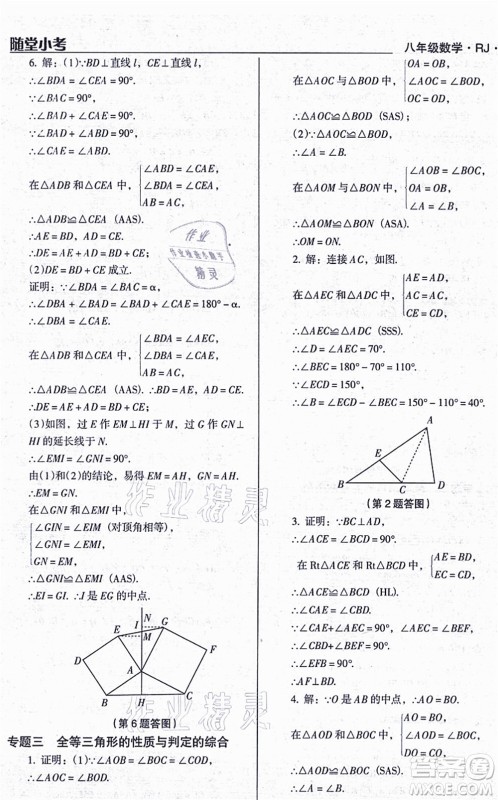 随堂小考
八年级数学·RJ·
6. 解：(1)∵BD⊥直线 l，CE⊥直线 l，
∴∠BDA = ∠CEA = 90°.
∵∠BAC = 90°，
∴∠BAD + ∠CAE = 90°.
∵∠BAD + ∠ABD = 90°，
∴∠CAE = ∠ABD.
在△ADB 和△CEA 中，
∠ABD = ∠CAE，
∠BDA = ∠CEA，
AB = AC，
∴△ADB≌△CEA (AAS).
∴AE = BD，AD = CE.
∴DE = AE + AD = BD + CE；
(2)DE = BD + CE 成立.
证明：∵∠BDA = ∠BAC = α，
∴∠DBA + ∠BAD = ∠BAD + ∠CAE = 180° - α.
∴∠DBA = ∠CAE.
在△ADB 和△CEA 中，
∠BDA = ∠AEC，
∠DBA = ∠CAE，
AB = AC，
∴△ADB≌△CEA (AAS). ∴BD = AE，AD = CE.
∴DE = AE + AD = BD + CE；
(3)如图，过 E 作 EM⊥HI 于 M，过 G 作 GN⊥
HI 的延长线于 N.
∴∠EMI = ∠GNI = 90°.
由(1)和(2)的结论，易得 EM = AH = GN.
∴EM = GN.
在△GNI 和△EMI 中，
∠GIN = ∠EIM (对顶角相等)，
∠GNI = ∠EMI，
GN = EM，
∴△GNI≌△EMI (AAS).
∴EI = GI. ∴I 是 EG 的中点.
N
E
I
G
M
F
D
A
B
H
C
(第 6 题答图)
专题三 全等三角形的性质与判定的综合
1. 证明：(1)∵∠AOD = ∠BOC = ∠COD，
∴∠AOC = ∠BOD.
在△AOC 与△BOD 中，
OA = OB，
∠AOC = ∠BOD，
OC = OD，
∴△AOC≌△BOD (SAS)；
(2)∵△AOC≌△BOD，
∴∠A = ∠B.
在△AOM 与△BON 中，
∠AOB = ∠BOC，
OA = OB，
∠A = ∠B，
∴△AOM≌△BON (ASA).
∴OM = ON.
2. 解：连接 AC，如图.
在△AEC 与△ADC 中，
AE = AD，
AC = AC，
CE = CD，
∴△AEC≌△ADC (SSS).
∴∠AEC = ∠D = 70°.
∴∠BEC = 180° - 70° = 110°.
∵∠BCE = 180° - ∠ECD = 180° - 150° = 30°，
∴∠B = ∠AEC - ∠BCE = 150° - 110° = 40°.
A
E
B
C
D
(第 2 题答图)
3. 证明：∵BC⊥AD，
∴∠ACE = ∠BCD = 90°.
在 Rt△ACE 和 Rt△BCD 中，
AE = BD，
EC = CD，
∴△ACE≌△BCD (HL).
∴∠CAE = ∠CBD.
∵∠AEC = ∠BEF，
∴∠EFB = ∠ACE = 90°.
∴AF⊥BD.
4. 解：∵在△AOC 与△BOD 中，
AO = BO，
∠AOC = ∠BOD，
DO = CO，
∴△AOC≌△BOD (SAS).
作业
精灵
作业精灵
答案圈
MXQE.COM